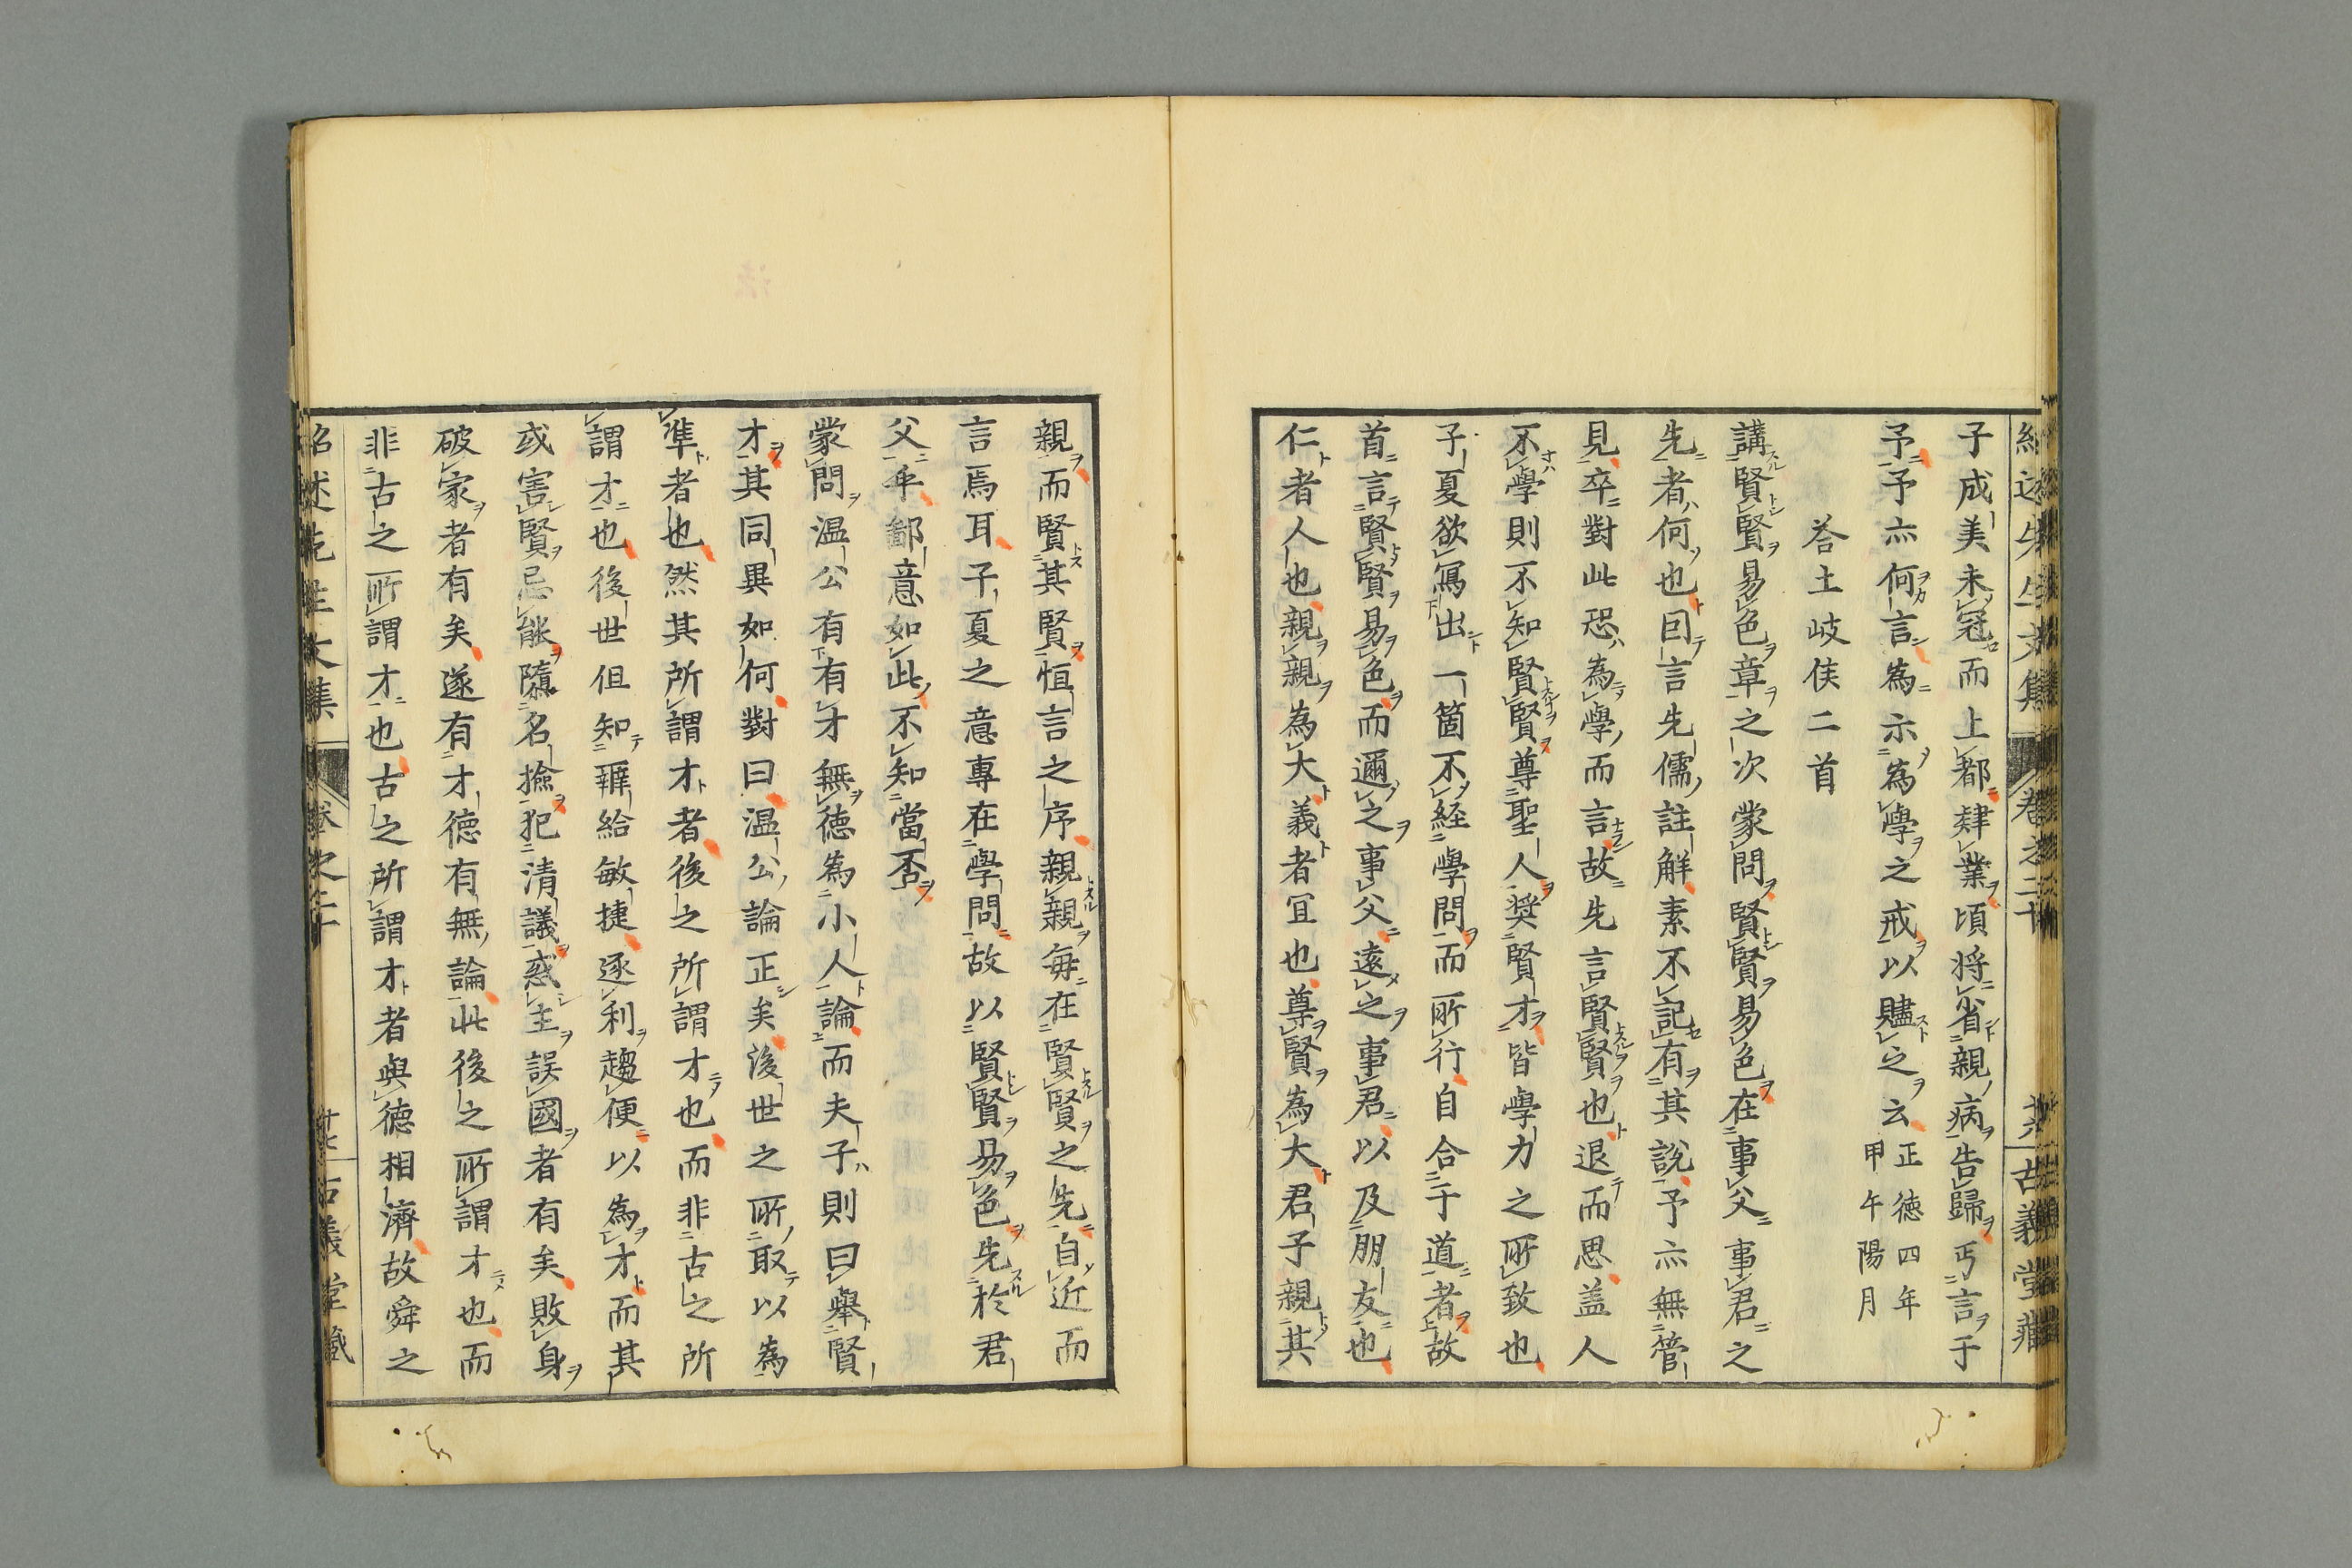 紹述先生文集 卷之二十 廿六 古義堂藏
子成美未冠而上都肄業頃將省親病告歸丐言于
予予亦何言為示為學之戒以贐之云正德四年
甲午陽月
荅土岐侯二首
講賢賢易色章之次蒙問賢賢易色在事父事君之
先者何也曰言先儒註解素不記有其說予亦無管
見卒對此恐為學而言故先言賢賢也退而思盖人
不學則不知賢賢尊聖人奬賢才皆學力之所致也
子夏欲寫出一箇不経學問而所行自合于道者故
首言賢賢易色而邇之事父遠之事君以及朋友也
仁者人也親親為大義者宜也尊賢為大君子親其
親而賢其賢恒言之序親親每在賢賢之先自近而
言焉耳子夏之意專在學問故以賢賢易色先於君
父乎鄙意如此不知當否
蒙問温公有有才無德為小人論而夫子則曰舉賢
才其同異如何對曰温公論正矣後世之所取以為
準者也然其所謂才者後之所謂才也而非古之所
謂才也後世但知辯給敏捷逐利趨便以為才而其
或害賢忌能隳名撿犯清議惑主誤國者有矣敗身
破家者有矣遂有才德有無論此後之所謂才也而
非古之所謂才也古之所謂才者與德相濟故舜之
紹述先生文集 卷之二十 廿七 古義堂藏